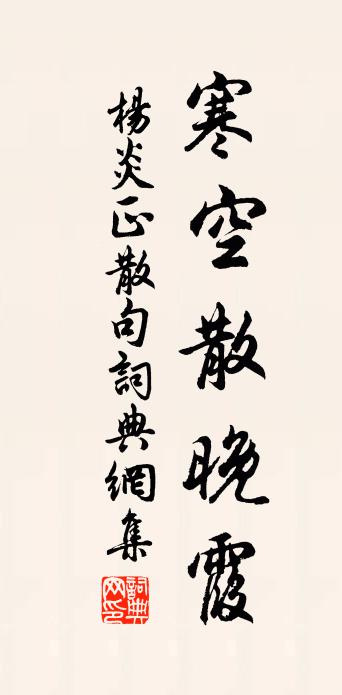 寒空散晚霞
楊炎正散句詞典網集
詞典網印